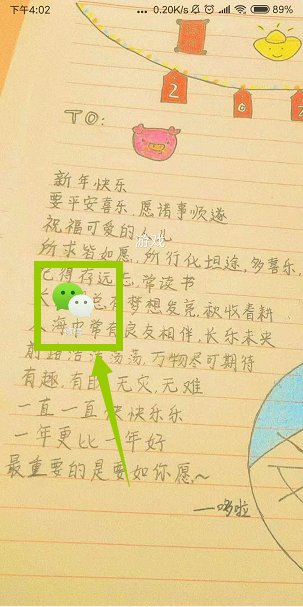 下午4:02 ... 0.20K/s 89%
2 0 2
TO:
新年快乐
要平安喜乐,愿诸事顺遂
祝福可爱的 儿
游戏
所求皆如愿,所行化坦途,多喜乐,
记得存远志,常读书
有梦想发亮,秋收春耕
海中常有良友相伴,长乐未央
前路浩浩荡荡,万物尽可期待
有趣,有 无灾,无难
一直一直快快乐乐
一年更比一年好
最重要的是要如你愿~
——哆啦